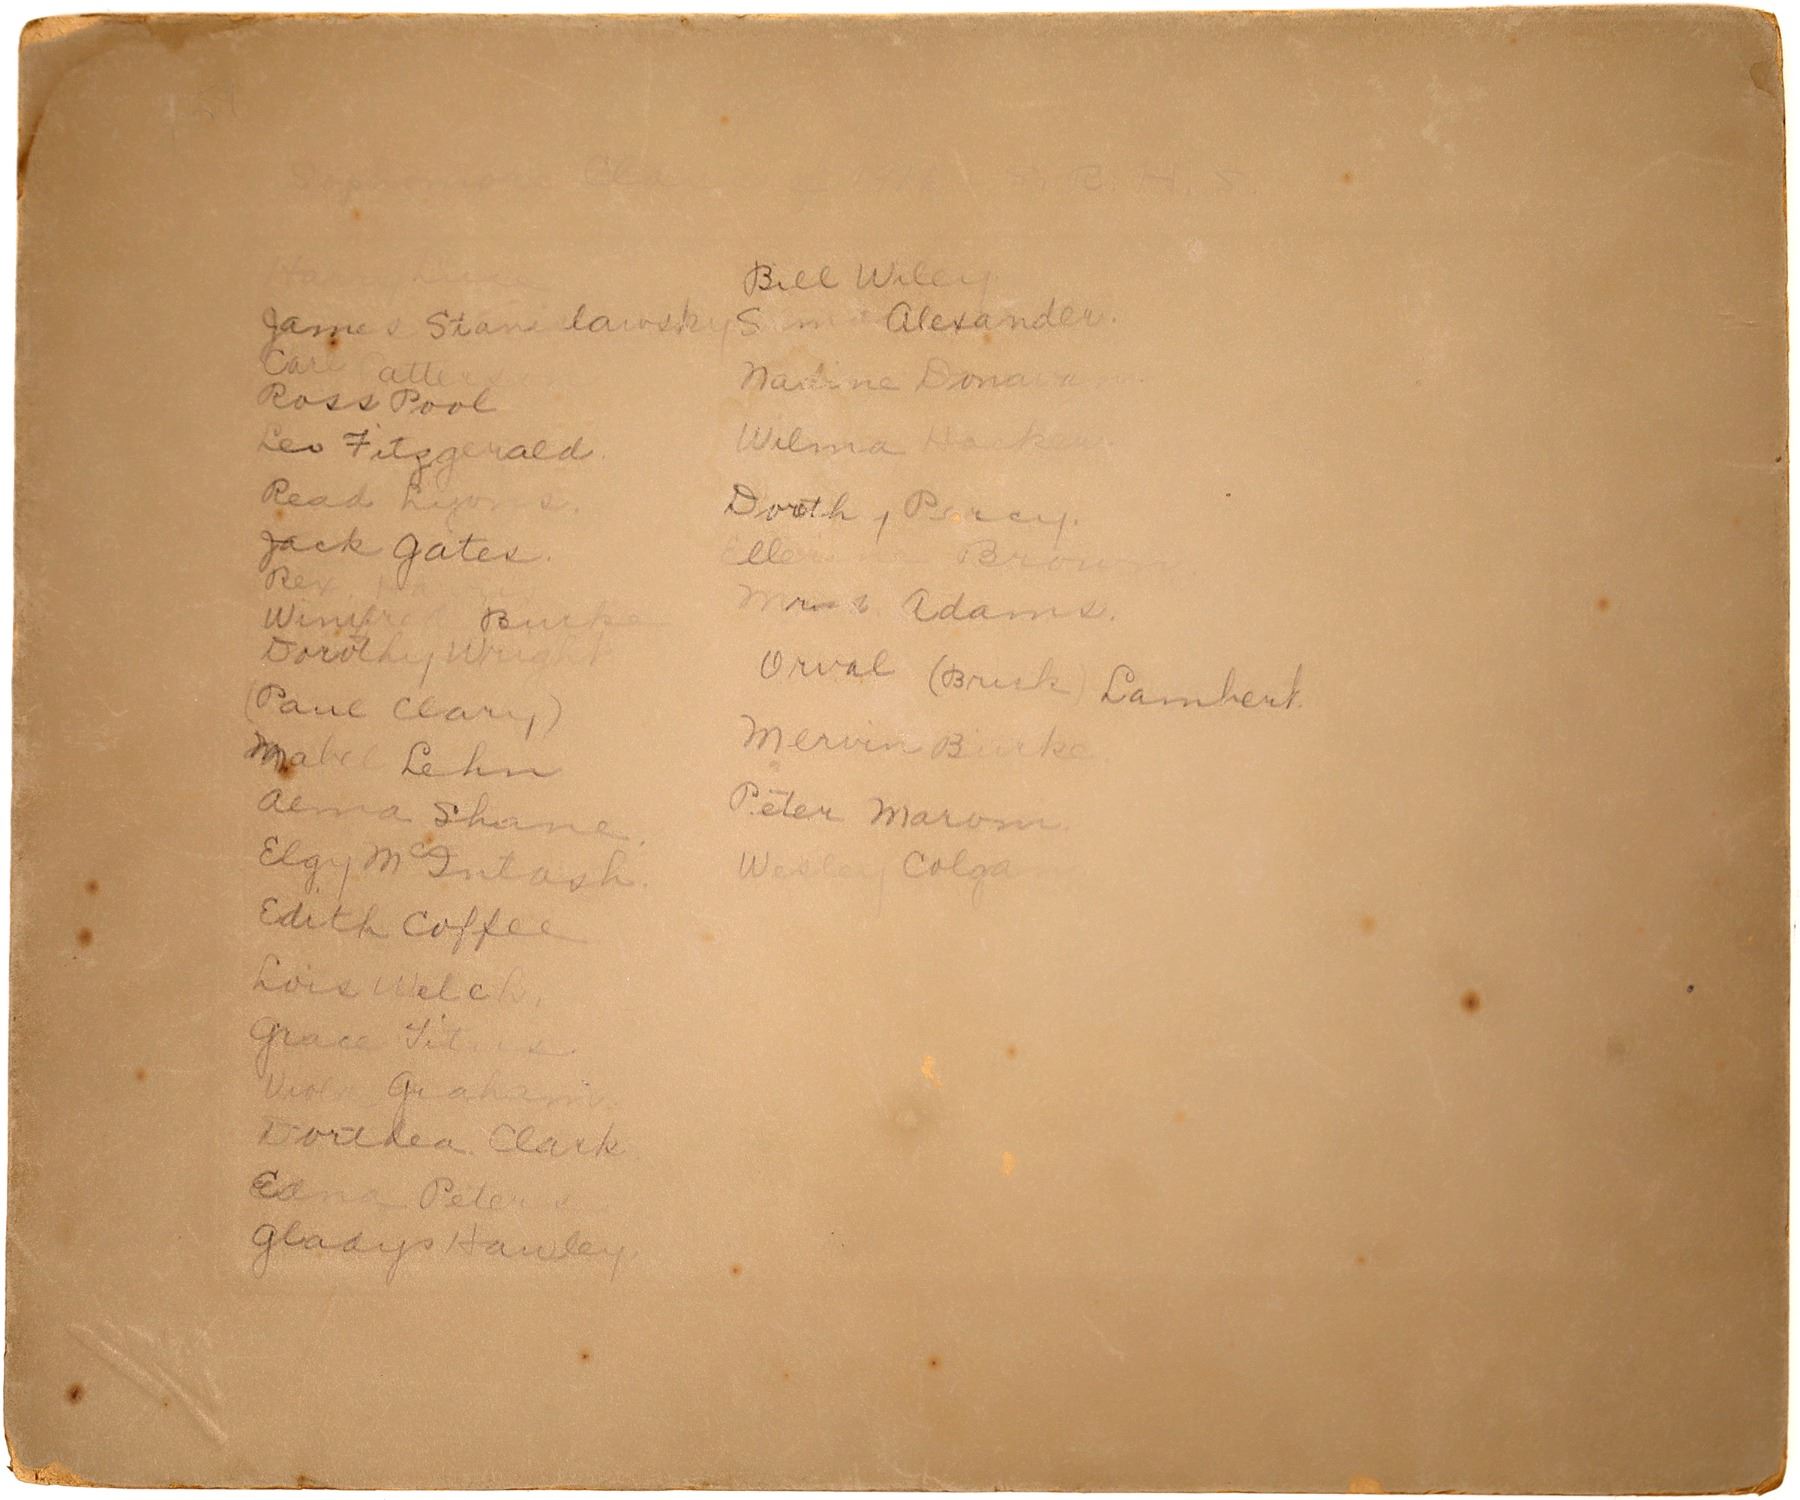 Sophomore Class of 1916 S. R. H. S.
Harry
James Stanislawsky
Carl Patterson
Ross Pool
Leo Fitzgerald.
Read Lyons.
Jack Gates.
Rex
Winifred Burke
Dorothy Wright
(Paul Clary)
Mabel Lehn
Alma Shane.
Elgy McIntosh.
Edith Coffee
Lois Welch.
Grace Titus.
Viola Graham.
Dorthea Clark
Edna Peters
Gladys Hawley.
Bill Wiley
Alexander.
Nadine Donavan.
Wilma
Dorthy Percy.
Brown.
Miss Adams.
Orval (Brick) Lambert.
Mervin Burke.
Peter Maroni.
Wesley Colgan